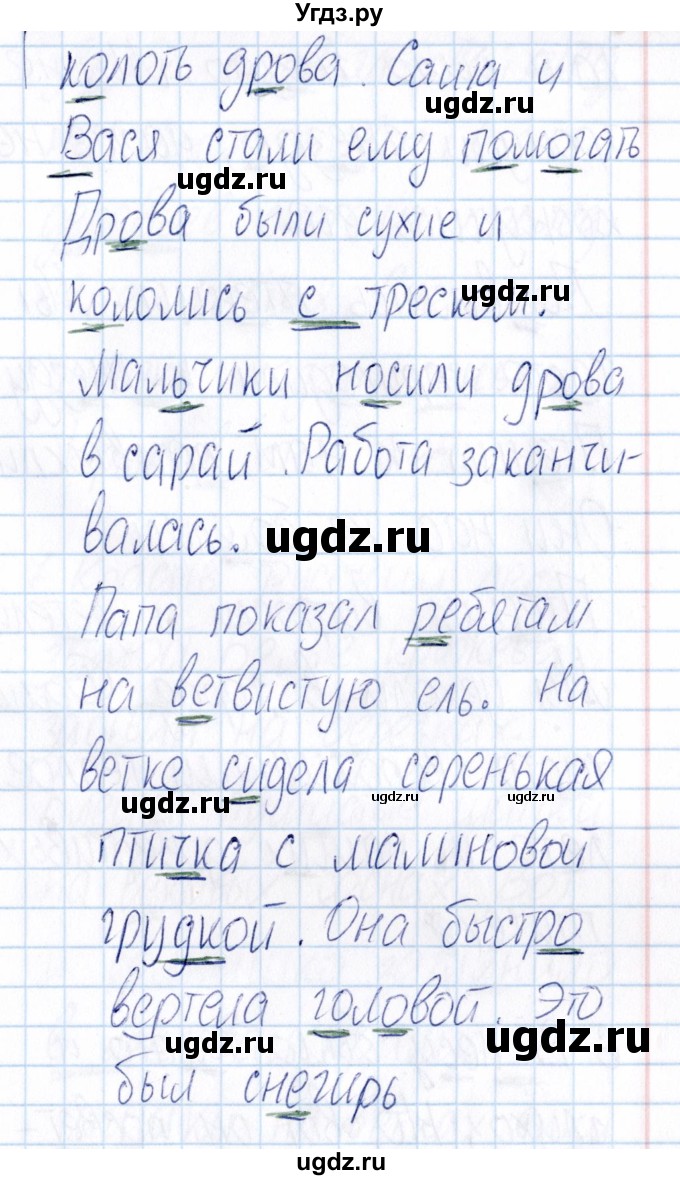 Угдз.ру
колоть дрова. Саша и
ugdz.ru
Вася стали ему помогать
ugdz.ru
Дрова были сухие и
ugdz.ru
кололись с треском.
Мальчики носили дрова
в сарай. Работа заканчи-
валась.
ugdz.ru
Папа показал ребятам
на ветвистую ель. На
ветке сидела серенькая
ugdz.ru ugdz.ru ugdz.ru
птичка с малиновой
грудкой. Она быстро
вертела головой. Это
ugdz.ru ugdz.ru ugdz.ru
был снегирь
ugdz.ru